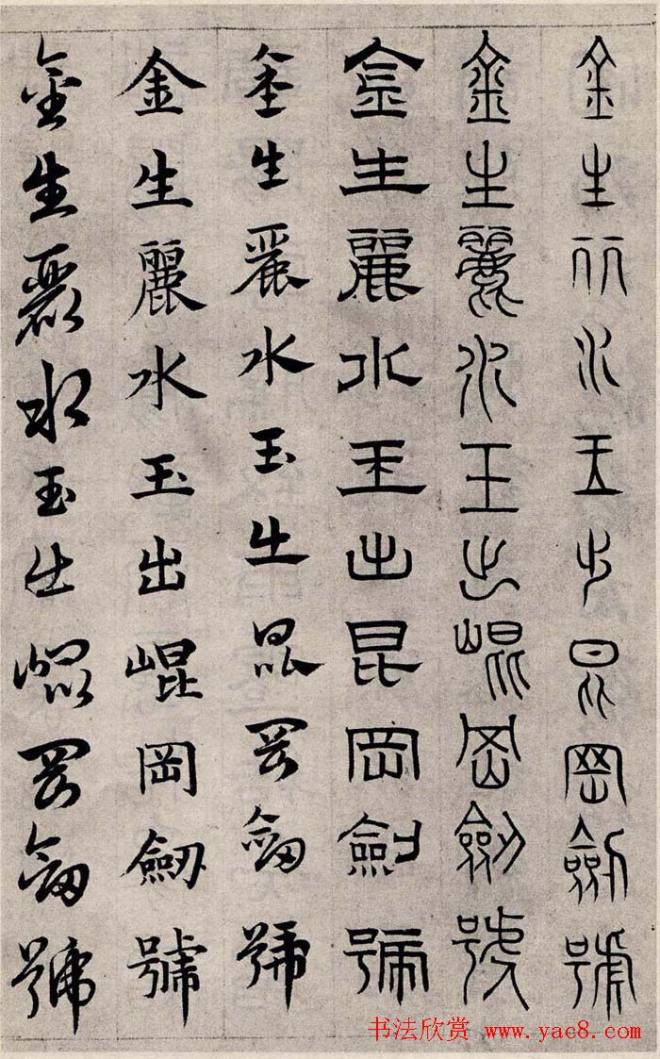 金生麗水玉出昆岡劍號
金生麗水玉出崐岡劍號
金生麗水玉出昆岡劍號
金生麗水玉出昆岡劍號
金生麗水玉出崐岡劒號
金生麗水玉出崐岡劍號
书法欣赏 www.yac8.com